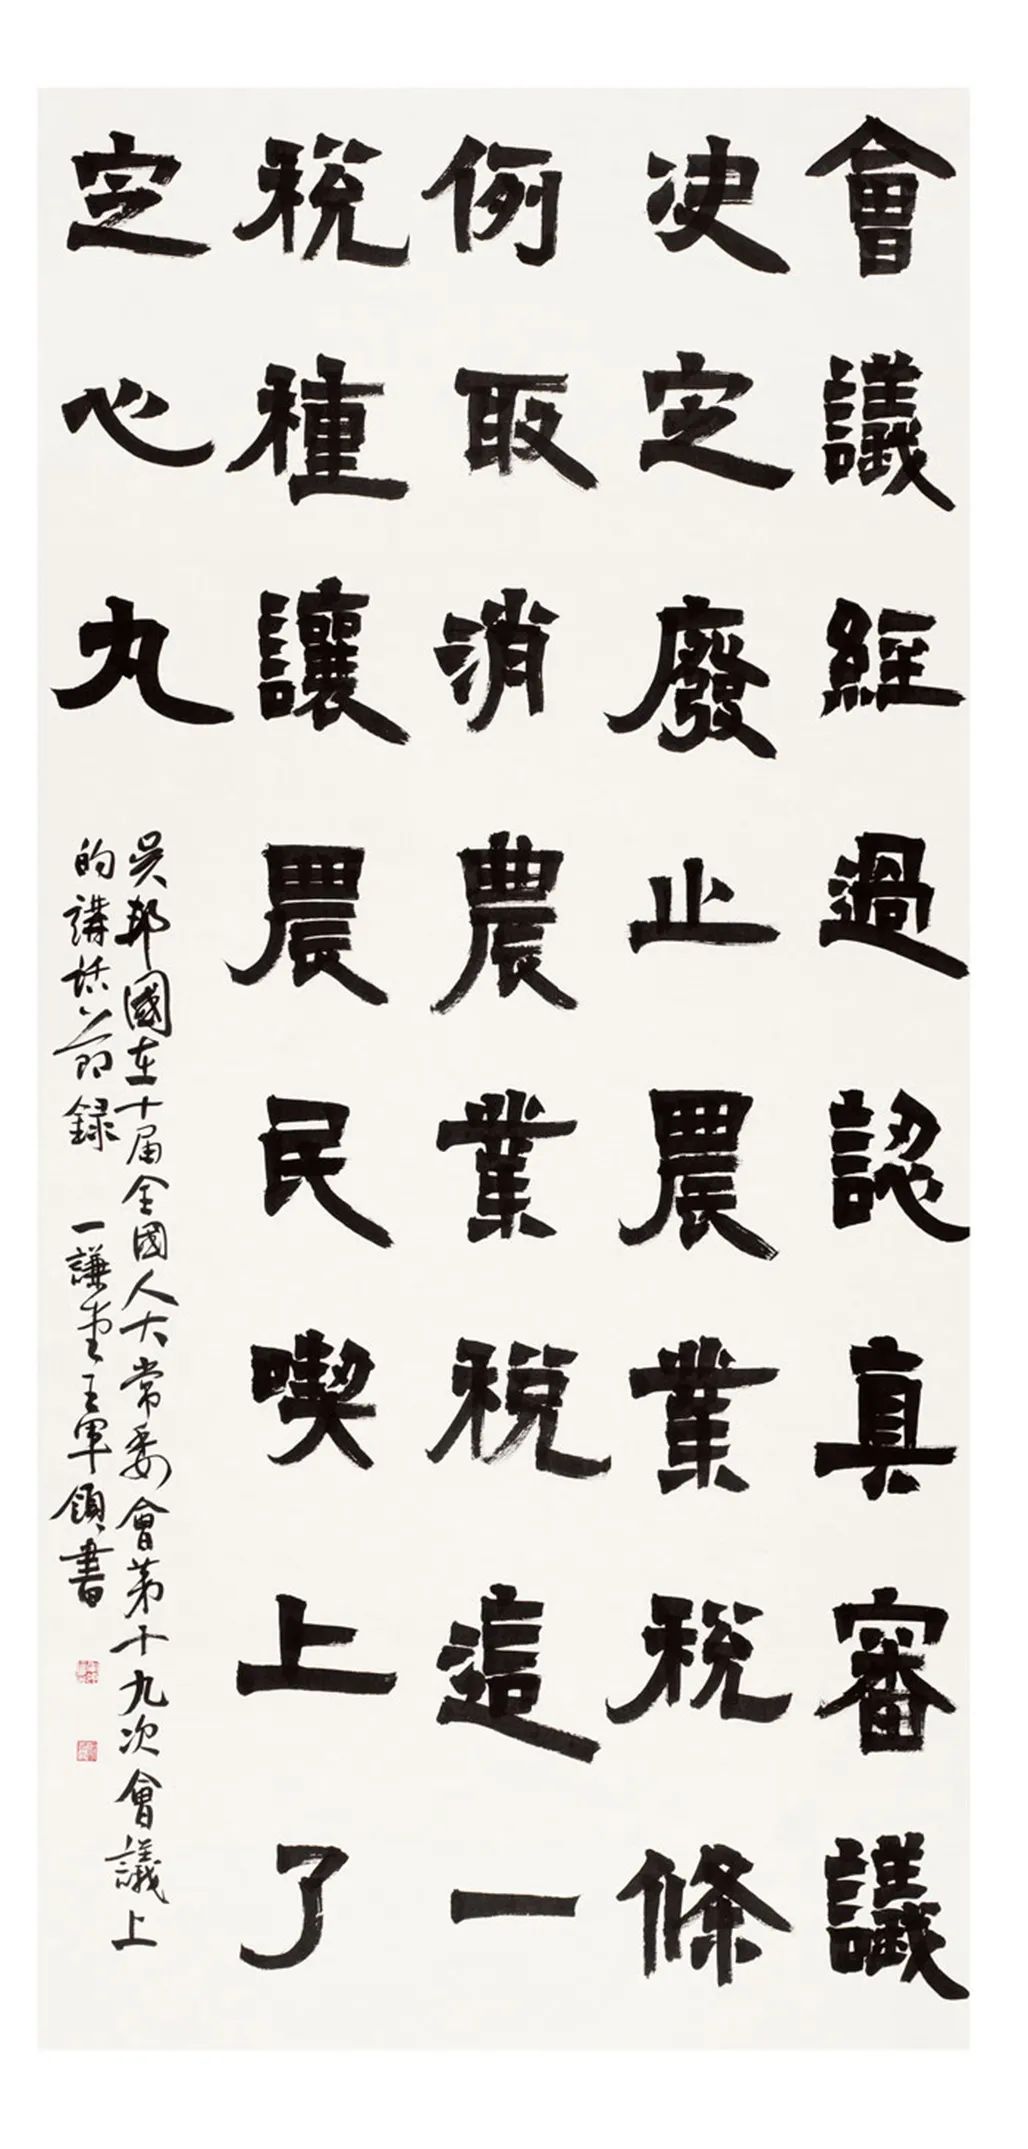 會議經過認真審議
決定廢止農業税條
例取消農業税這一
税種讓農民喫上了
定心丸
吴邦國在十届全國人大常委會第十九次會議上
的講話節録 一謙堂王軍領書